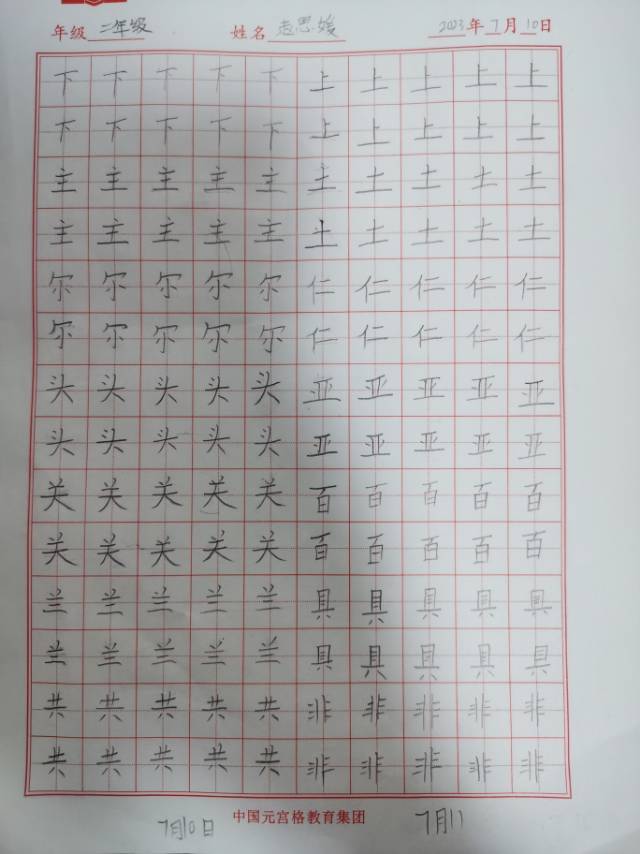 年级 二年级 姓名 赵思媛 2023年7月10日
下 下 下 下 下 上 上 上 上 上
下 下 下 下 下 上 上 上 上 上
主 主 主 主 主 土 土 土 土 土
主 主 主 主 主 土 土 土 土 土
尔 尔 尔 尔 尔 仁 仁 仁 仁 仁
尔 尔 尔 尔 尔 仁 仁 仁 仁 仁
头 头 头 头 头 亚 亚 亚 亚 亚
头 头 头 头 头 亚 亚 亚 亚 亚
关 关 关 关 关 百 百 百 百 百
关 关 关 关 关 百 百 百 百 百
兰 兰 兰 兰 兰 具 具 具 具 具
兰 兰 兰 兰 兰 具 具 具 具 具
共 共 共 共 共 非 非 非 非 非
共 共 共 共 共 非 非 非 非 非
7月10日 中国元宫格教育集团 7月11